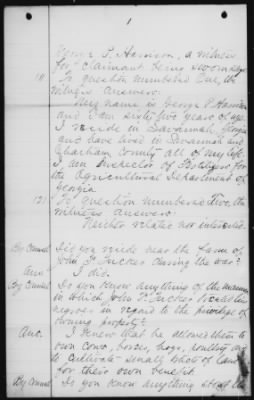 1
George P. Harrison, a witness
for claimant being sworn says
To question numbered One, the
witness answers:
My name is George P. Harrison
and I am sixty five years of age.
I reside in Savannah, Georgia
and have lived in Savannah and
Chatham County all of my life.
I am Inspector of Fertilizers for
the Agricultural Department of
Georgia.
To question numbered Two, the
witness answers:
Neither related nor interested.
By Counsel Did you reside near the farm of
John P. Tucker during the war?
Ans I did.
By Counsel Do you know anything of the manner
in which John P. Tucker treated his
negroes in regard to the privilege of
owning property?
Ans. I know that he allowed them to
own cows, horses, hogs, poultry and
to cultivate small plots of land
for their own benefit.
By Counsel Do you know anything about the